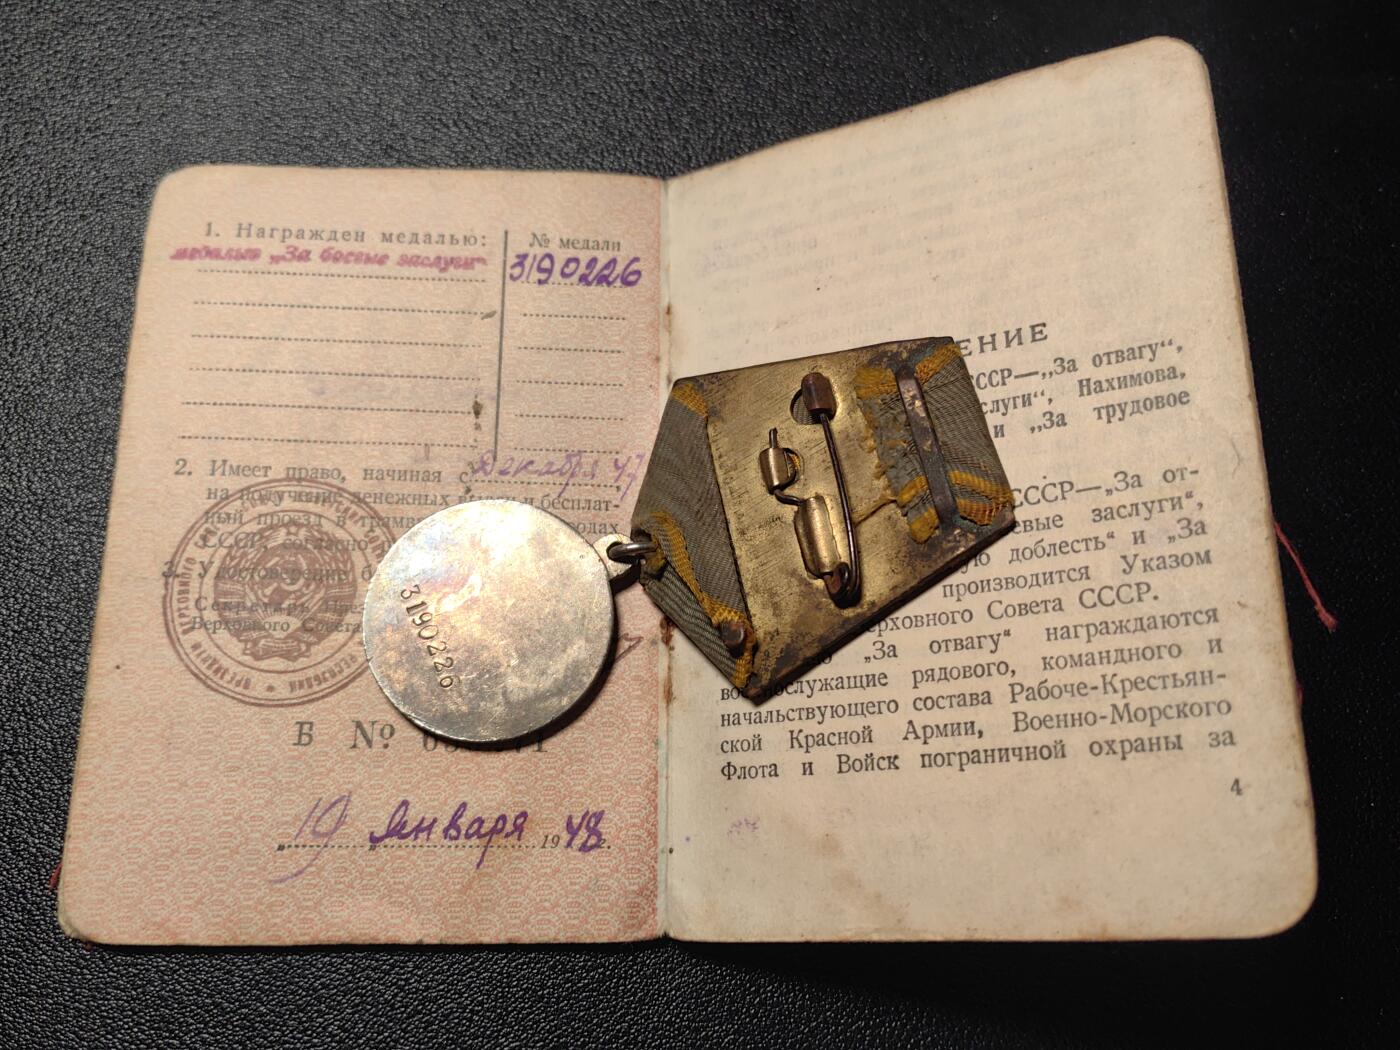 1. Награжден медалью:
№ медали
медалью „За боевые заслуги“
3190226
2. Имеет право, начиная с Декабря 47
на получение денежных и бесплат-
ный проезд в
СССР,
3. Удостоверение
Секретарь
Верховного Совета
Б №
„19“ Января 1948 г.
3190226
ЕНИЕ
СССР—„За отвагу“,
слуги“, Нахимова,
и „За трудовое
СССР—„За от-
евые заслуги“,
ую доблесть“ и „За
производится Указом
ерховного Совета СССР.
„За отвагу“ награждаются
ослужащие рядового, командного и
начальствующего состава Рабоче-Крестьян-
ской Красной Армии, Военно-Морского
Флота и Войск пограничной охраны за
4